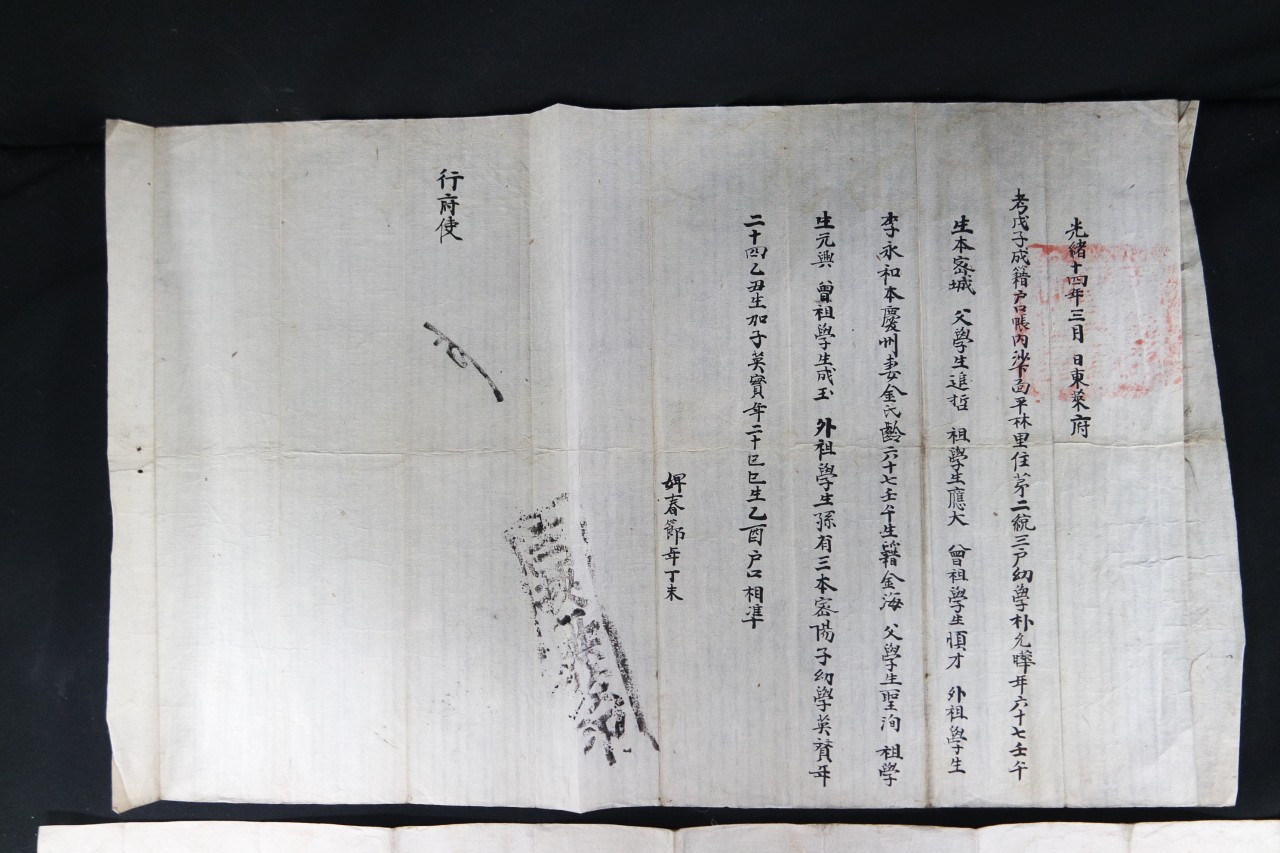 光緖十四年三月 日東萊府
考戊子成籍戶口帳內沙下面平林里住第二統三戶幼學朴允曄年六十七壬午
生本密城 父學生進哲 祖學生應大 曾祖學生順才 外祖學生
李永和本慶州妻金氏齡六十七壬午生籍金海 父學生聖洵 祖學
生元興 曾祖學生成玉 外祖學生孫有三本密陽子幼學英贊年
二十四乙丑生加子英實年二十己巳生乙酉戶口相準
婢春節年丁未
行府使